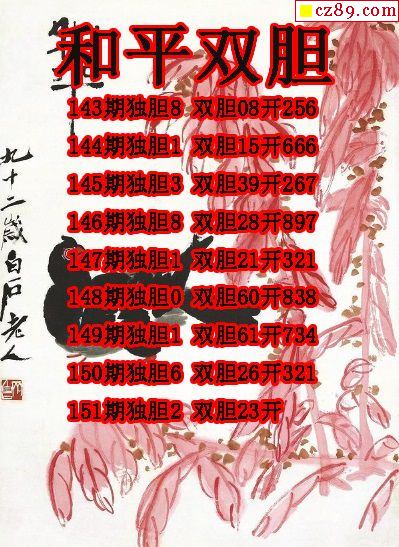 cz89.com
和平双胆
143期独胆8 双胆08开256
144期独胆1 双胆15开666
145期独胆3 双胆39开267
146期独胆8 双胆28开897
147期独胆1 双胆21开321
148期独胆0 双胆60开838
149期独胆1 双胆61开734
150期独胆6 双胆26开321
151期独胆2 双胆23开
九十二岁白石老人